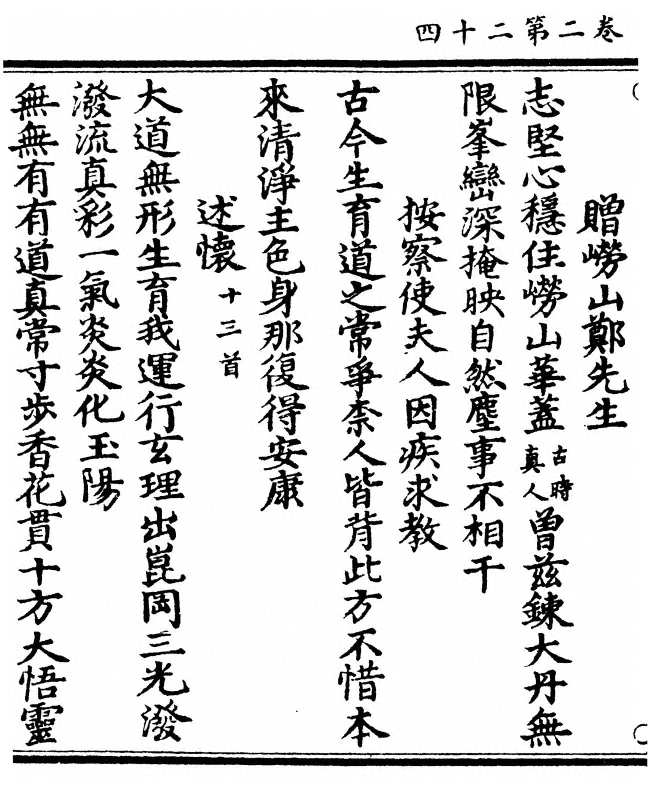 卷二第二十四
贈嶗山鄭先生
志堅心穩住嶗山華蓋古時真人曾兹鍊大丹無
限峯巒深掩映自然塵事不相干
按察使夫人因疾求教
古今生育道之常爭柰人皆背此方不惜本
來清淨主色身那復得安康
述懷十三首
大道無形生育我運行玄理出崑岡三光潑
潑流真彩一氣炎炎化玉陽
無無有有道真常寸步香花貫十方大悟靈